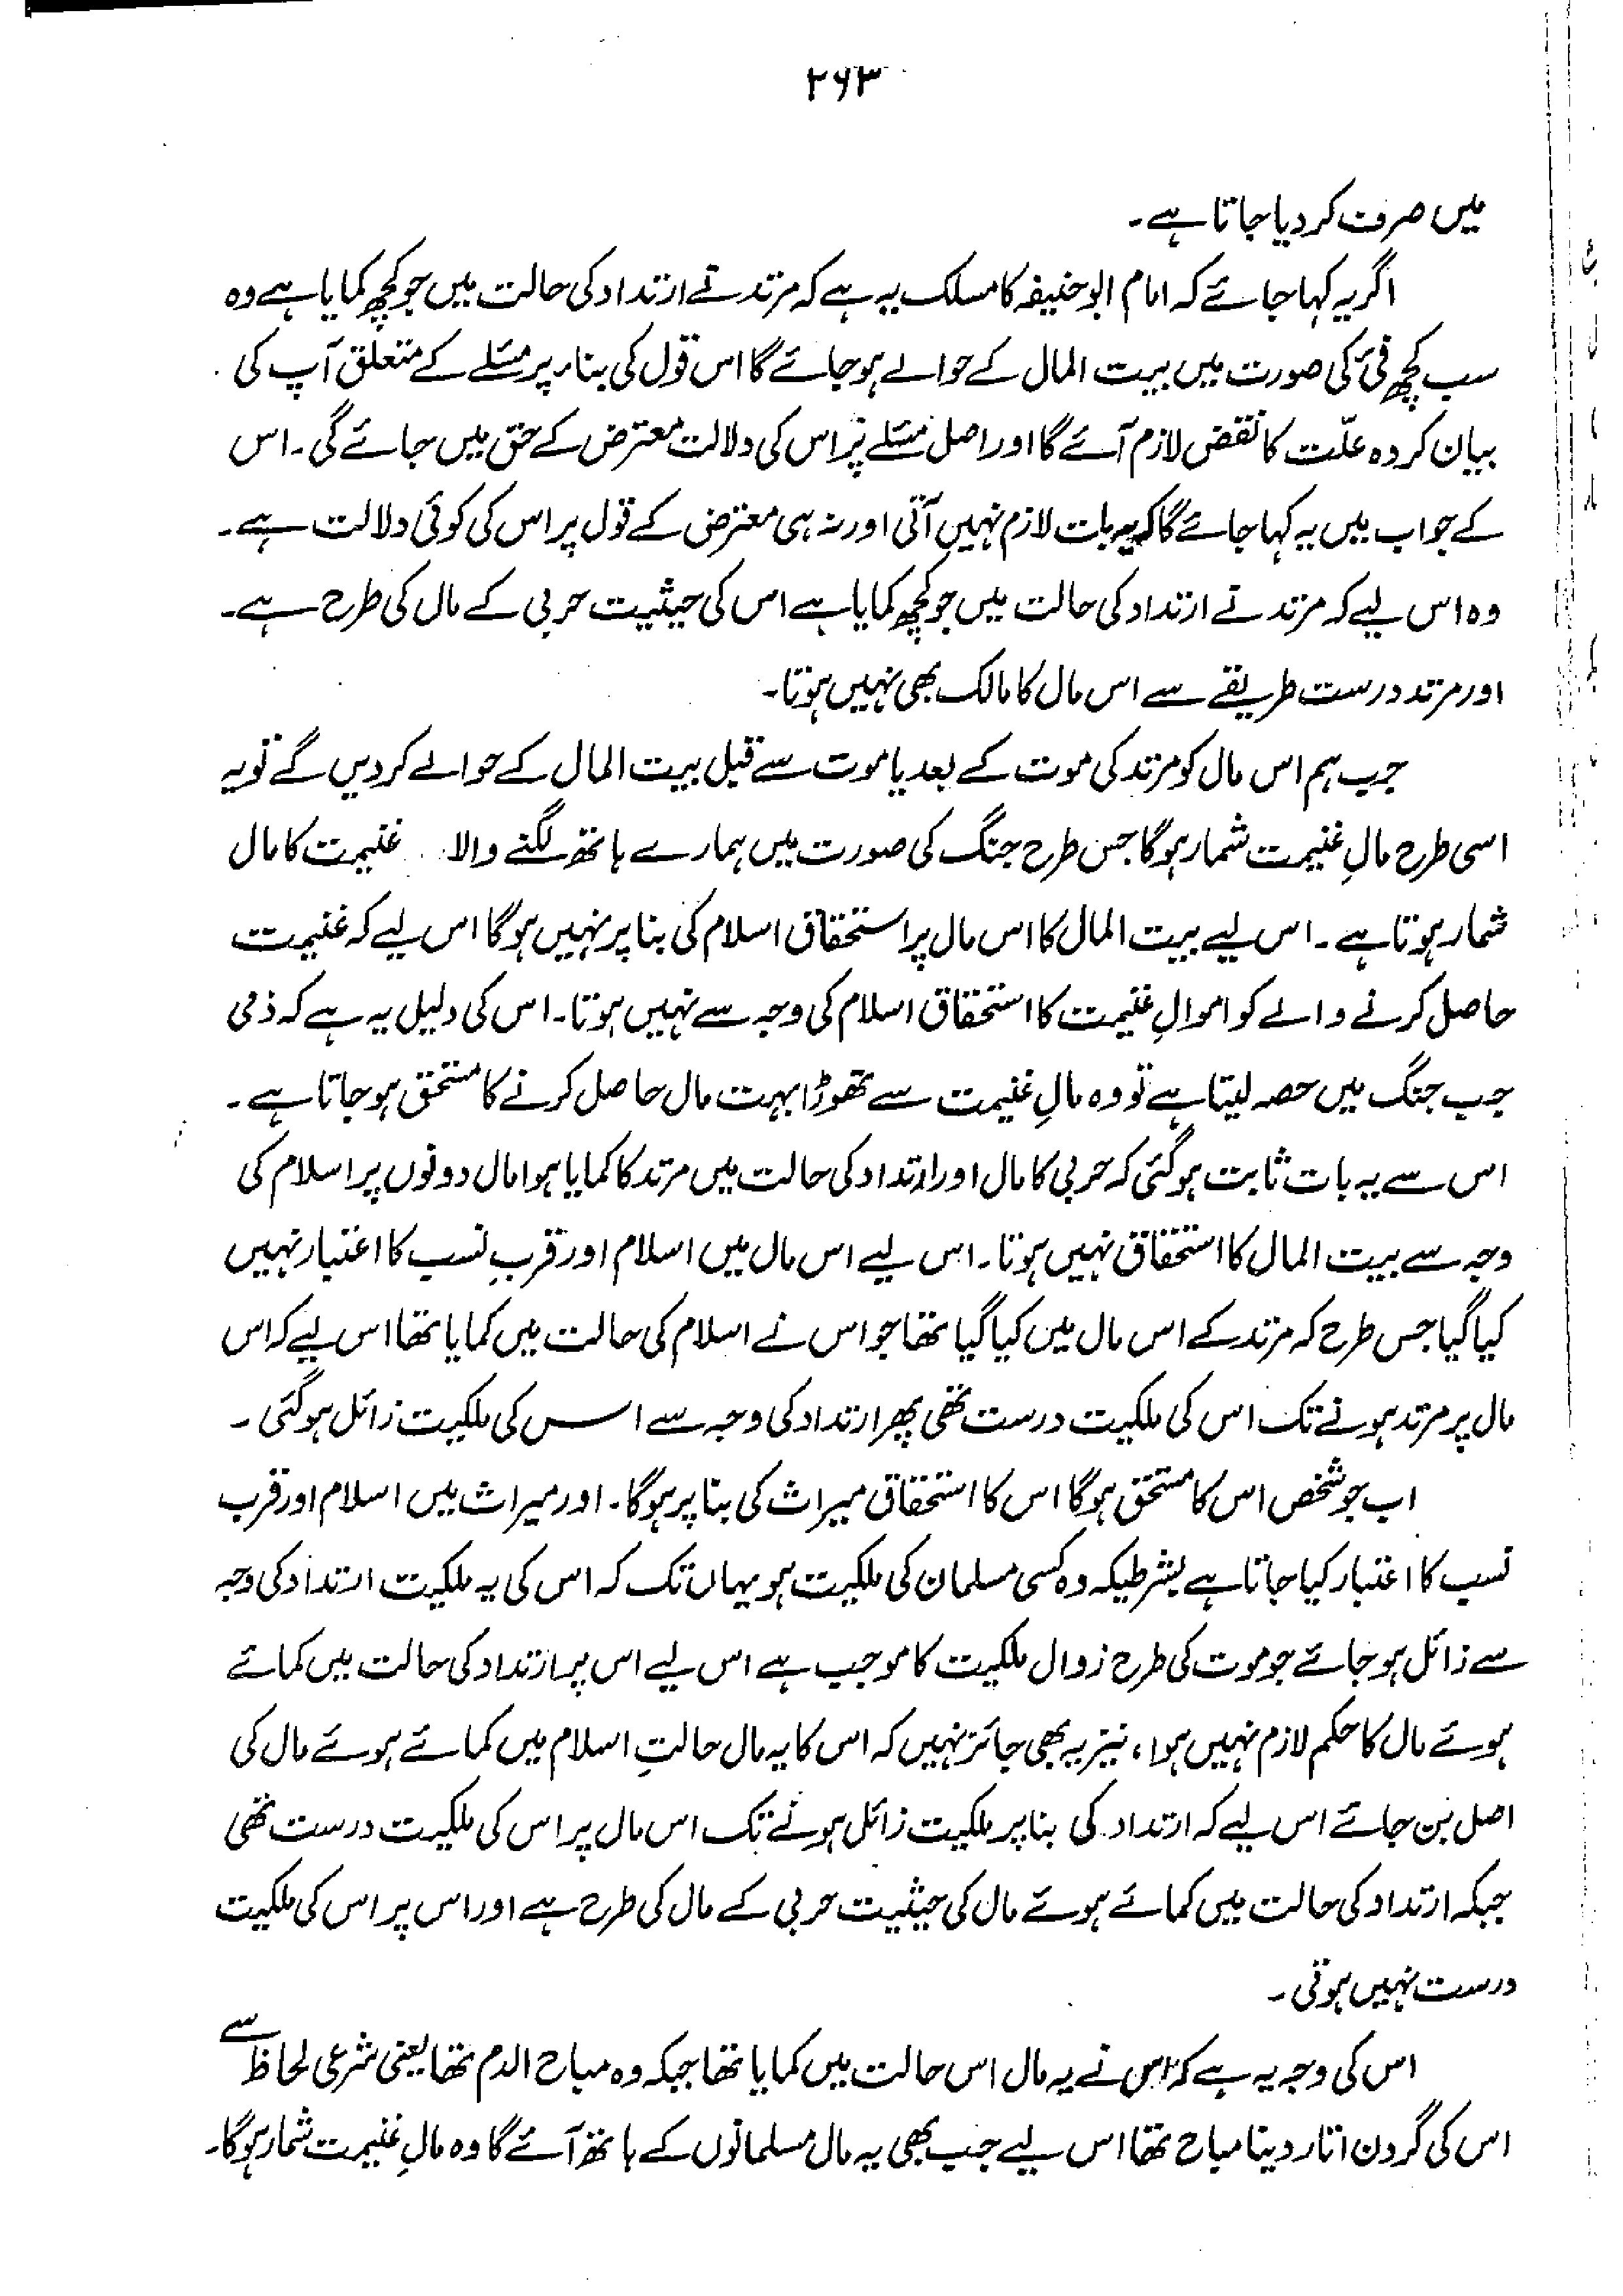 ۲۶۳
میں صرف کر دیا جاتا ہے۔
اگر یہ کہا جائے کہ امام ابو حنیفہ کا مسلک یہ ہے کہ مرتد نے ارتداد کی حالت میں جو کچھ کمایا ہے وہ
سب کچھ فیٔ کی صورت میں بیت المال کے حوالے ہو جائے گا اس قول کی بناء پر مسئلے کے متعلق آپ کی
بیان کردہ علّت کا نقض لازم آئے گا اور اصل مسئلے پر اس کی دلالت معترض کے حق میں جائے گی۔ اس
کے جواب میں یہ کہا جائے گا کہ یہ بات لازم نہیں آتی اور نہ ہی معترض کے قول پر اس کی کوئی دلالت ہے۔
وہ اس لیے کہ مرتد نے ارتداد کی حالت میں جو کچھ کمایا ہے اس کی حیثیت حربی کے مال کی طرح ہے۔
اور مرتد درست طریقے سے اس مال کا مالک بھی نہیں ہوتا۔
جب ہم اس مال کو مرتد کی موت کے بعد یا موت سے قبل بیت المال کے حوالے کر دیں گے تو یہ
اسی طرح مالِ غنیمت شمار ہو گا جس طرح جنگ کی صورت میں ہمارے ہاتھ لگنے والا غنیمت کا مال
شمار ہوتا ہے۔ اس لیے بیت المال کا اس مال پر استحقاق اسلام کی بنا پر نہیں ہو گا اس لیے کہ غنیمت
حاصل کرنے والے کو اموالِ غنیمت کا استحقاق اسلام کی وجہ سے نہیں ہوتا۔ اس کی دلیل یہ ہے کہ ذمی
جب جنگ میں حصہ لیتا ہے تو وہ مالِ غنیمت سے تھوڑا بہت مال حاصل کرنے کا مستحق ہو جاتا ہے۔
اس سے یہ بات ثابت ہو گئی کہ حربی کا مال اور ارتداد کی حالت میں مرتد کا کمایا ہوا مال دونوں پر اسلام کی
وجہ سے بیت المال کا استحقاق نہیں ہوتا۔ اس لیے اس مال میں اسلام اور قربِ نسب کا اعتبار نہیں
کیا گیا جس طرح کہ مرتد کے اس مال میں کیا گیا تھا جو اس نے اسلام کی حالت میں کمایا تھا اس لیے کہ اس
مال پر مرتد ہونے تک اس کی ملکیت درست تھی پھر ارتداد کی وجہ سے اس کی ملکیت زائل ہو گئی۔
اب جو شخص اس کا مستحق ہو گا اس کا استحقاق میراث کی بنا پر ہو گا۔ اور میراث میں اسلام اور قرب
نسب کا اعتبار کیا جاتا ہے بشرطیکہ وہ کسی مسلمان کی ملکیت ہو یہاں تک کہ اس کی یہ ملکیت ارتداد کی وجہ
سے زائل ہو جائے جو موت کی طرح زوال ملکیت کا موجب ہے اس لیے اس پر ارتداد کی حالت میں کمائے
ہوئے مال کا حکم لازم نہیں ہوا، نیز یہ بھی جائز نہیں کہ اس کا یہ مال حالتِ اسلام میں کمائے ہوئے مال کی
اصل بن جائے اس لیے کہ ارتداد کی بنا پر ملکیت زائل ہونے تک اس مال پر اس کی ملکیت درست تھی
جبکہ ارتداد کی حالت میں کمائے ہوئے مال کی حیثیت حربی کے مال کی طرح ہے اور اس پر اس کی ملکیت
درست نہیں ہوتی۔
اس کی وجہ یہ ہے کہ اس نے یہ مال اس حالت میں کمایا تھا جبکہ وہ مباح الدم تھا یعنی شرعی لحاظ سے
اس کی گردن اتار دینا مباح تھا اس لیے جب بھی یہ مال مسلمانوں کے ہاتھ آئے گا وہ مالِ غنیمت شمار ہو گا۔